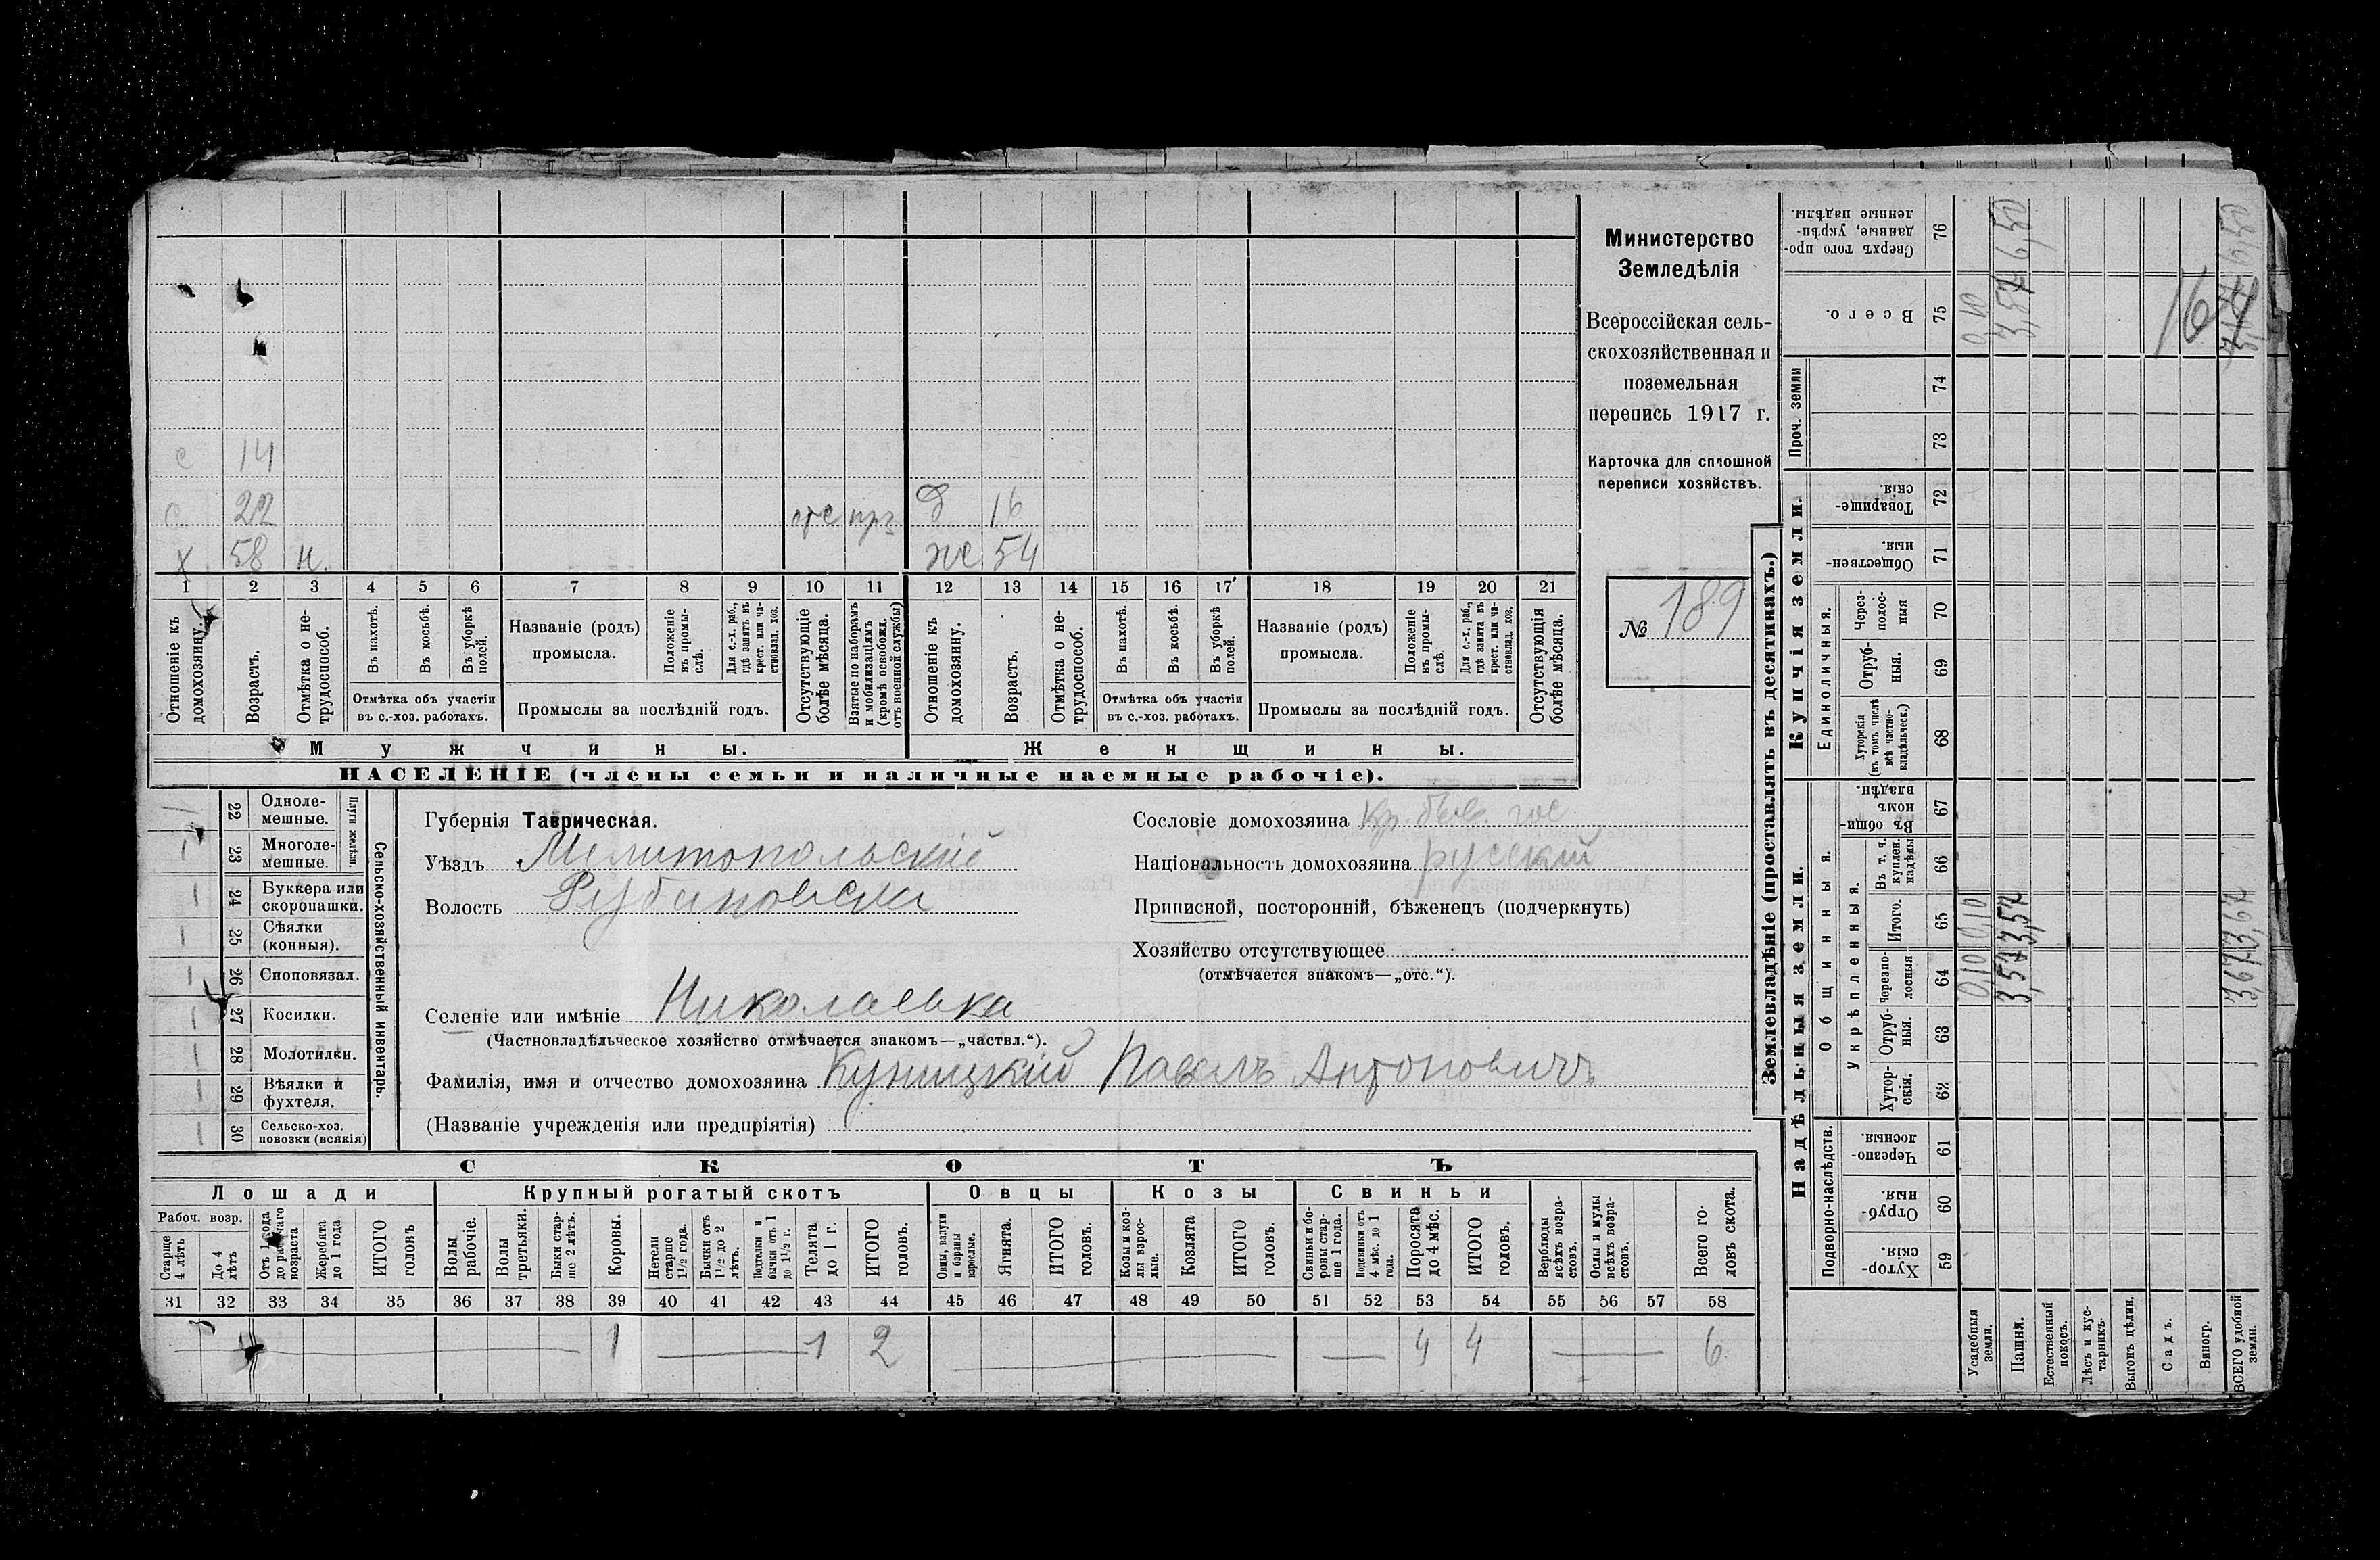 Министерство
Земледѣлія
Всероссійская сель-
скохозяйственная и
поземельная
перепись 1917 г.
Карточка для сплошной
переписи хозяйствъ.
№ 189
с 14
с 22 отс прз д 16
х 58 н. ж 54
1 2 3 4 5 6 7 8 9 10 11 12 13 14 15 16 17 18 19 20 21
Отношеніе къ
домохозяину.
Возрастъ.
Отмѣтка о не-
трудоспособ.
Въ пахотѣ.
Въ косьбѣ.
Въ уборкѣ
полей.
Отмѣтка объ участіи
въ с.-хоз. работахъ.
Названіе (родъ)
промысла.
Положеніе
въ промы-
слѣ.
Для с.-х. раб.,
гдѣ занятъ въ
крест. или ча-
стновлад. хоз.
Промыслы за послѣдній годъ.
Отсутствующіе
болѣе мѣсяца.
Взятые по наборамъ
и мобилизаціямъ
(кромѣ освобожд.
отъ военной службы)
Отношеніе къ
домохозяину.
Возрастъ.
Отмѣтка о не-
трудоспособ.
Въ пахотѣ.
Въ косьбѣ.
Въ уборкѣ
полей.
Отмѣтка объ участіи
въ с.-хоз. работахъ.
Названіе (родъ)
промысла.
Положеніе
въ промы-
слѣ.
Для с.-х. раб.,
гдѣ занята въ
крест. или ча-
стновлад. хоз.
Промыслы за послѣдній годъ.
Отсутствующія
болѣе мѣсяца.
Мужчины.
Женщины.
НАСЕЛЕНІЕ (члены семьи и наличные наемные рабочіе).
22 Одноле-
мешные.
23 Многоле-
мешные.
Плуги желѣзн.
24 Буккера или
скоропашки.
25 Сѣялки
(конныя).
26 Сноповязал.
27 Косилки.
28 Молотилки.
29 Вѣялки и
фухтеля.
30 Сельско-хоз.
повозки (всякія)
Сельско-хозяйственный инвентарь.
Губернія Таврическая.
Уѣздъ Мелитопольскій
Волость
Селеніе или имѣніе Николаевка
(Частновладѣльческое хозяйство отмѣчается знакомъ—„частвл.“).
Фамилія, имя и отчество домохозяина Куницкій Павелъ Антоновичъ
(Названіе учрежденія или предпріятія)
Сословіе домохозяина Кр. быв. гос
Національность домохозяина русскій
Приписной, посторонній, бѣженецъ (подчеркнуть)
Хозяйство отсутствующее
(отмѣчается знакомъ—„отс.“).
СКОТЪ
Лошади
Крупный рогатый скотъ
Овцы
Козы
Свиньи
Рабоч. возр.
Старше
4 лѣтъ
До 4
лѣтъ
Отъ 1 года
до рабочаго
возраста
Жеребята
до 1 года
ИТОГО
головъ
Волы
рабочіе.
Волы
третьяки.
Быки стар-
ше 2 лѣтъ.
Коровы.
Нетели
старше
1 1/2 года.
Бычки отъ
1 1/2 до 2
лѣтъ.
Подтелки и
бычки отъ 1
до 1 1/2 г.
Телята
до 1 г.
ИТОГО
головъ.
Овцы, валухи
и бараны
взрослые.
Ягнята.
ИТОГО
головъ.
Козы и коз-
лы взрос-
лые.
Козлята
ИТОГО
головъ.
Свиньи и бо-
ровы стар-
ше 1 года.
Подсвинки отъ
4 мѣс. до 1
года.
Поросята
до 4 мѣс.
ИТОГО
головъ.
Верблюды
всѣхъ возра-
стовъ.
Ослы и мулы
всѣхъ возра-
стовъ.
Всего го-
ловъ скота.
31 32 33 34 35 36 37 38 39 40 41 42 43 44 45 46 47 48 49 50 51 52 53 54 55 56 57 58
1 1 2 4 4 6
Землевладѣніе (проставлять въ десятинахъ.)
Надѣльныя земли.
Купчія земли.
Проч. земли
Подворно-наслѣдств.
Общинныя.
Укрѣпленныя.
Единоличныя.
Сверхъ того про-
данные, укрѣп-
ленные надѣлы. 76
Всего. 75
74
73
Товарище-
скія. 72
Обществен-
ныя. 71
Через-
полос-
ныя 70
Отруб-
ныя. 69
Хуторскія
(въ томъ числѣ
всѣ частно-
владѣльческ.) 68
Въ общи-
номъ
владѣн. 67
Въ т. ч.
куплен.
надѣлы 66
Итого. 65
Черезпо-
лосныя 64
Отруб-
ныя. 63
Хутор-
скія. 62
Черезпо-
лосныя. 61
Отруб-
ныя. 60
Хутор-
скія. 59
Усадебныя
земли.
Пашня.
Естественный
покосъ.
Лѣсъ и кус-
тарникъ.
Выгонъ цѣлин.
Садъ.
Виногр.
ВСЕГО удобной
земли.
010 010
3,57 3,57
3,67 3,67
16